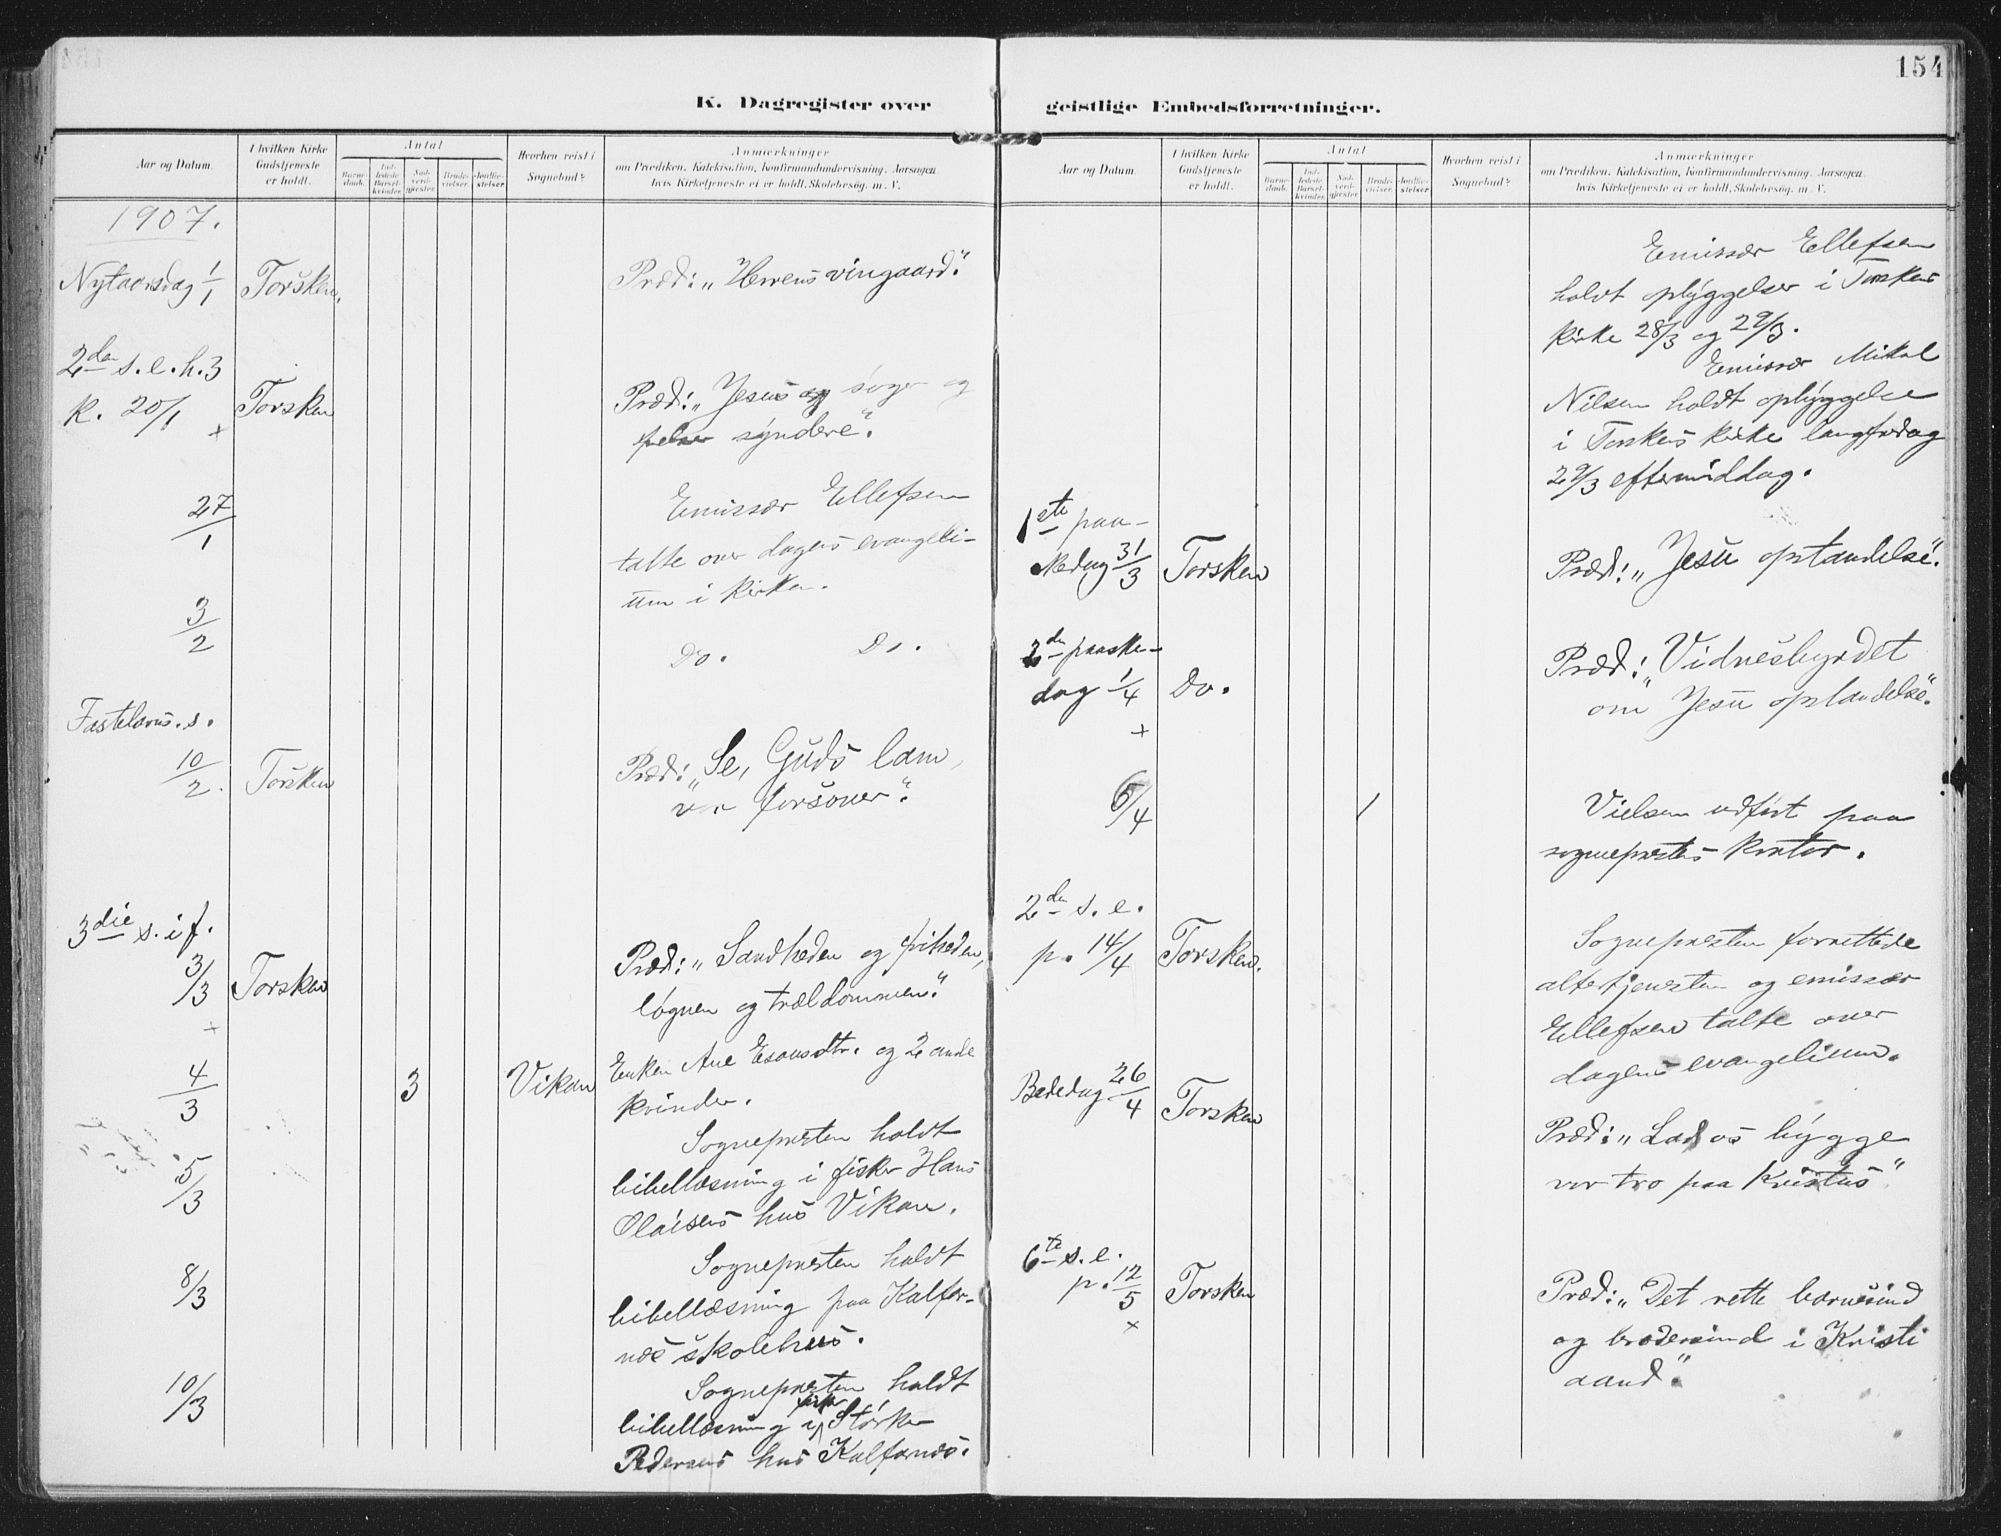 154
K. Dagregister over
geistlige Embedsforretninger.
Aar og Datum.
I hvilken Kirke
Gudstjeneste
er holdt.
Antal
Barne-
daab.
Ind-
ledede
Barsel-
kvinder.
Nad-
verd-
gjester.
Brude-
vielser.
Jordfæ-
stelser.
Hvorhen reist i
Sognebud?
Anmærkninger
om Prædiken, Katekisation, Konfirmandundervisning, Aarsagen
hvis Kirketjeneste ei er holdt, Skolebesøg m. V.
1907.
Nytaarsdag 1/1 Torsken. Præd: „Herrens vingaard".
2den s. e. h. 3
k. 20/1 Torsken Præd: „Jesus søger og
+ frelser syndere".
27/1 Emissær Ellefsen
talte over dagens evangeli-
um i kirken.
3/2 Do. Do.
Fastelavns. s.
10/2. Torsken Præd: „Se, Guds lam,
vor forsoner".
3die s. i f.
3/3 Torsken Præd: „Sandheden og friheden,
+ løgnen og trældommen".
4/3 3 Vikan Enken Ane Esausdtr. og 2 andre
kvinder.
5/3 Sognepresten holdt
bibellæsning i fisker Hans
Olaisens hus Vikan.
8/3 Sognepresten holdt
bibellæsning paa Kalfar-
næs skolehus.
10/3 Sognepresten holdt
bibellæsning i fisker Størker
Pedersens hus Kalfarnæs.
Aar og Datum.
I hvilken Kirke
Gudstjeneste
er holdt.
Antal
Barne-
daab.
Ind-
ledede
Barsel-
kvinder.
Nad-
verd-
gjester.
Brude-
vielser.
Jordfæ-
stelser.
Hvorhen reist i
Sognebud?
Anmærkninger
om Prædiken, Katekisation, Konfirmandundervisning, Aarsagen
hvis Kirketjeneste ei er holdt, Skolebesøg m. V.
Emissær Ellefsen
holdt opbyggelser i Torskens
kirke 28/3 og 29/3.
Emissær Mikal
Nilsen holdt opbyggelse
i Torskens kirke langfredag
29/3 eftermiddag.
1ste paa-
skedag 31/3 Torsken Præd: „Jesu opstandelse".
2den paaske-
dag 1/4 Do. Præd: „Vidnesbyrdet
+ om Jesu opstandelse".
6/4 1 Vielsen udført paa
sogneprestens kontor.
2den s. e.
p. 14/4 Torsken. Sognepresten forrettede
altertjenesten og emissær
Ellefsen talte over
dagens evangelium.
Bededag 26/4 Torsken Præd: „Lad os bygge
vor tro paa Kristus"
6te s. e.
p. 12/5 Torsken Præd: „Det rette barnesind
+ og brodersind i Kristi
aand".